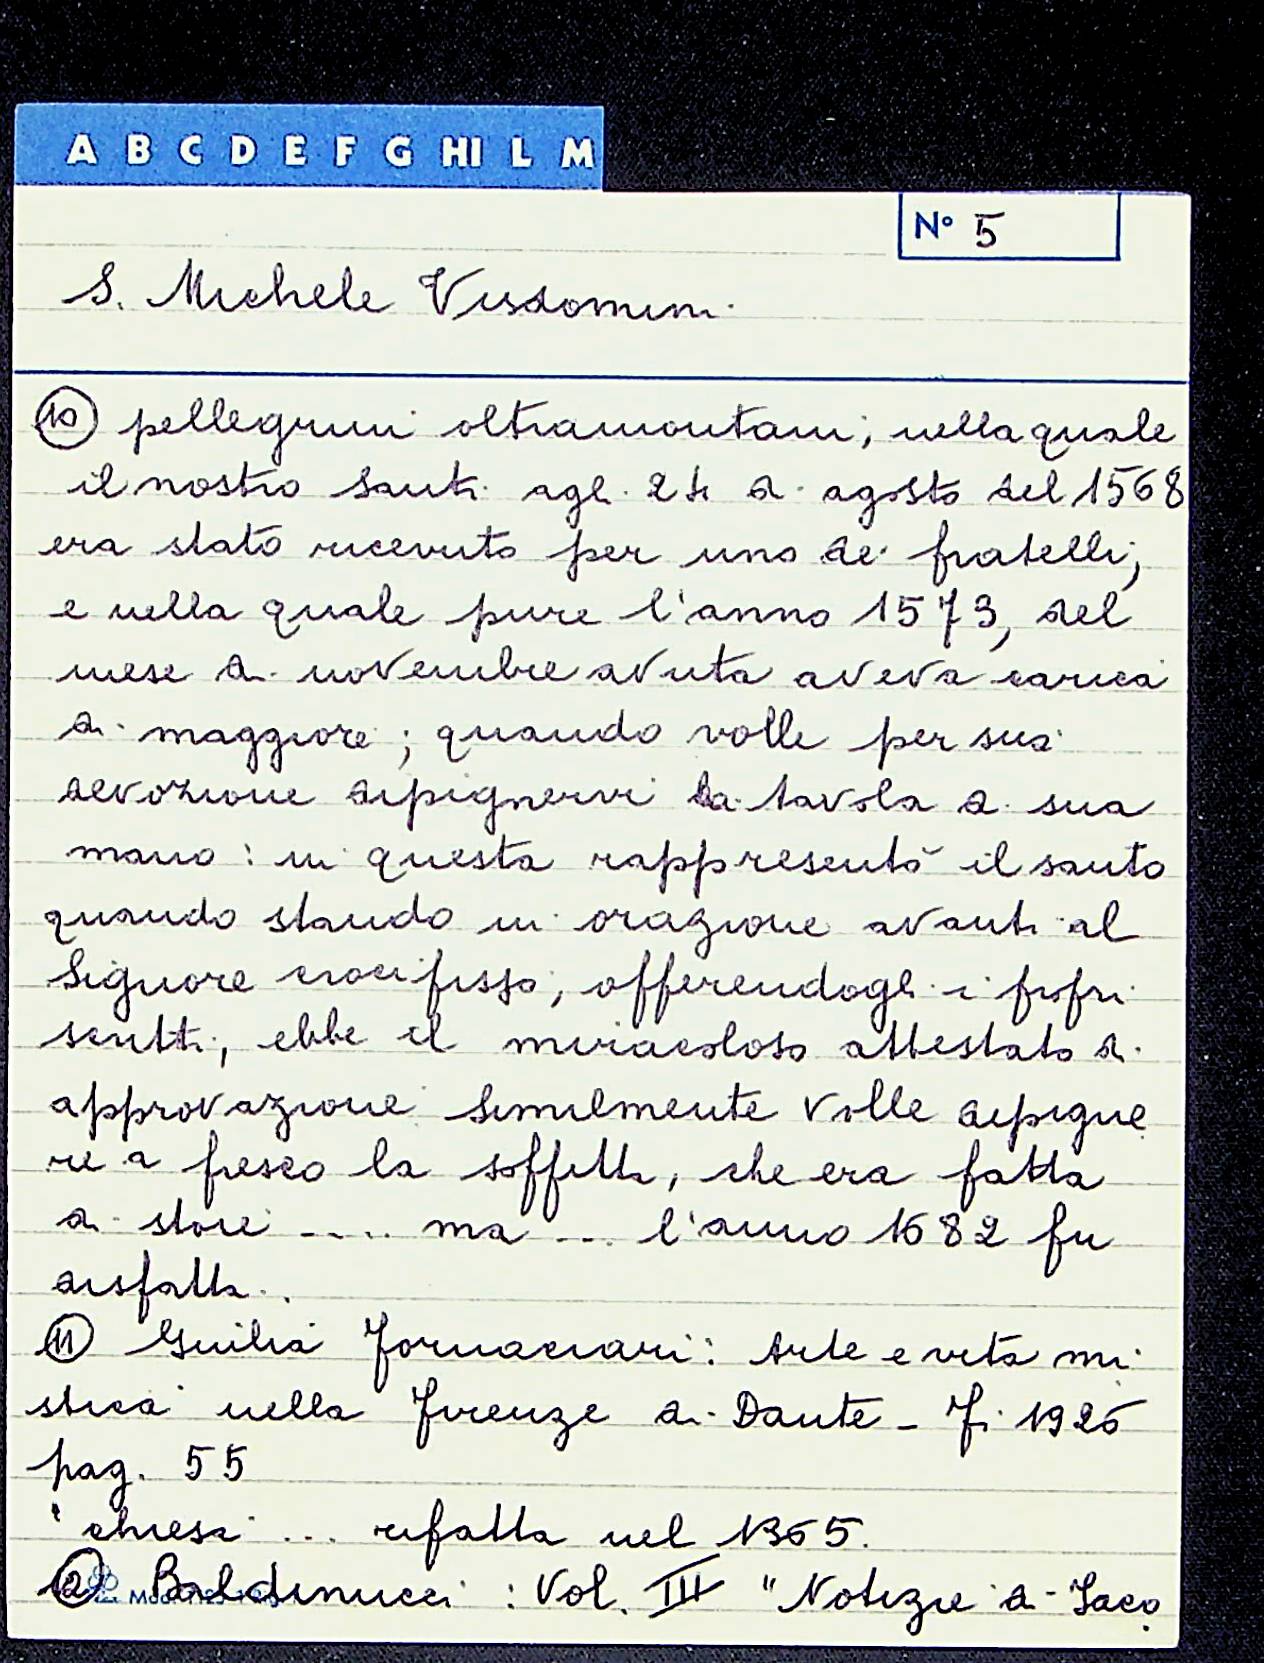 A B C D E F G HI L M
N° 5
S. Michele Visdomini
⑩ pellegrini oltramontani, nella quale
il nostro Santi agli 24 di agosto del 1568
era stato ricevuto per uno de' fratelli;
e nella quale pure l'anno 1573, del
mese di novembre avuta aveva carica
di maggiore; quando volle per sua
devozione dipignervi la tavola di sua
mano: in questa rappresentò il santo
quando stando in orazione avanti al
Signore crocifisso, offerendogli i
scritti, ebbe il miracoloso attestato di
approvazione similmente volle dipigne
re a fresco la soffitta, che era fatta
di stoie .... ma ... l'anno 1682 fu
disfatta.
⑪ Giulia Fornaciari: Arte e vita mi
stica nella Firenze di Dante - Fi
pag. 55
"chiesa ... rifatta nel 1365.
⑫ Baldinucci: Vol. III "Notizie di Jaco